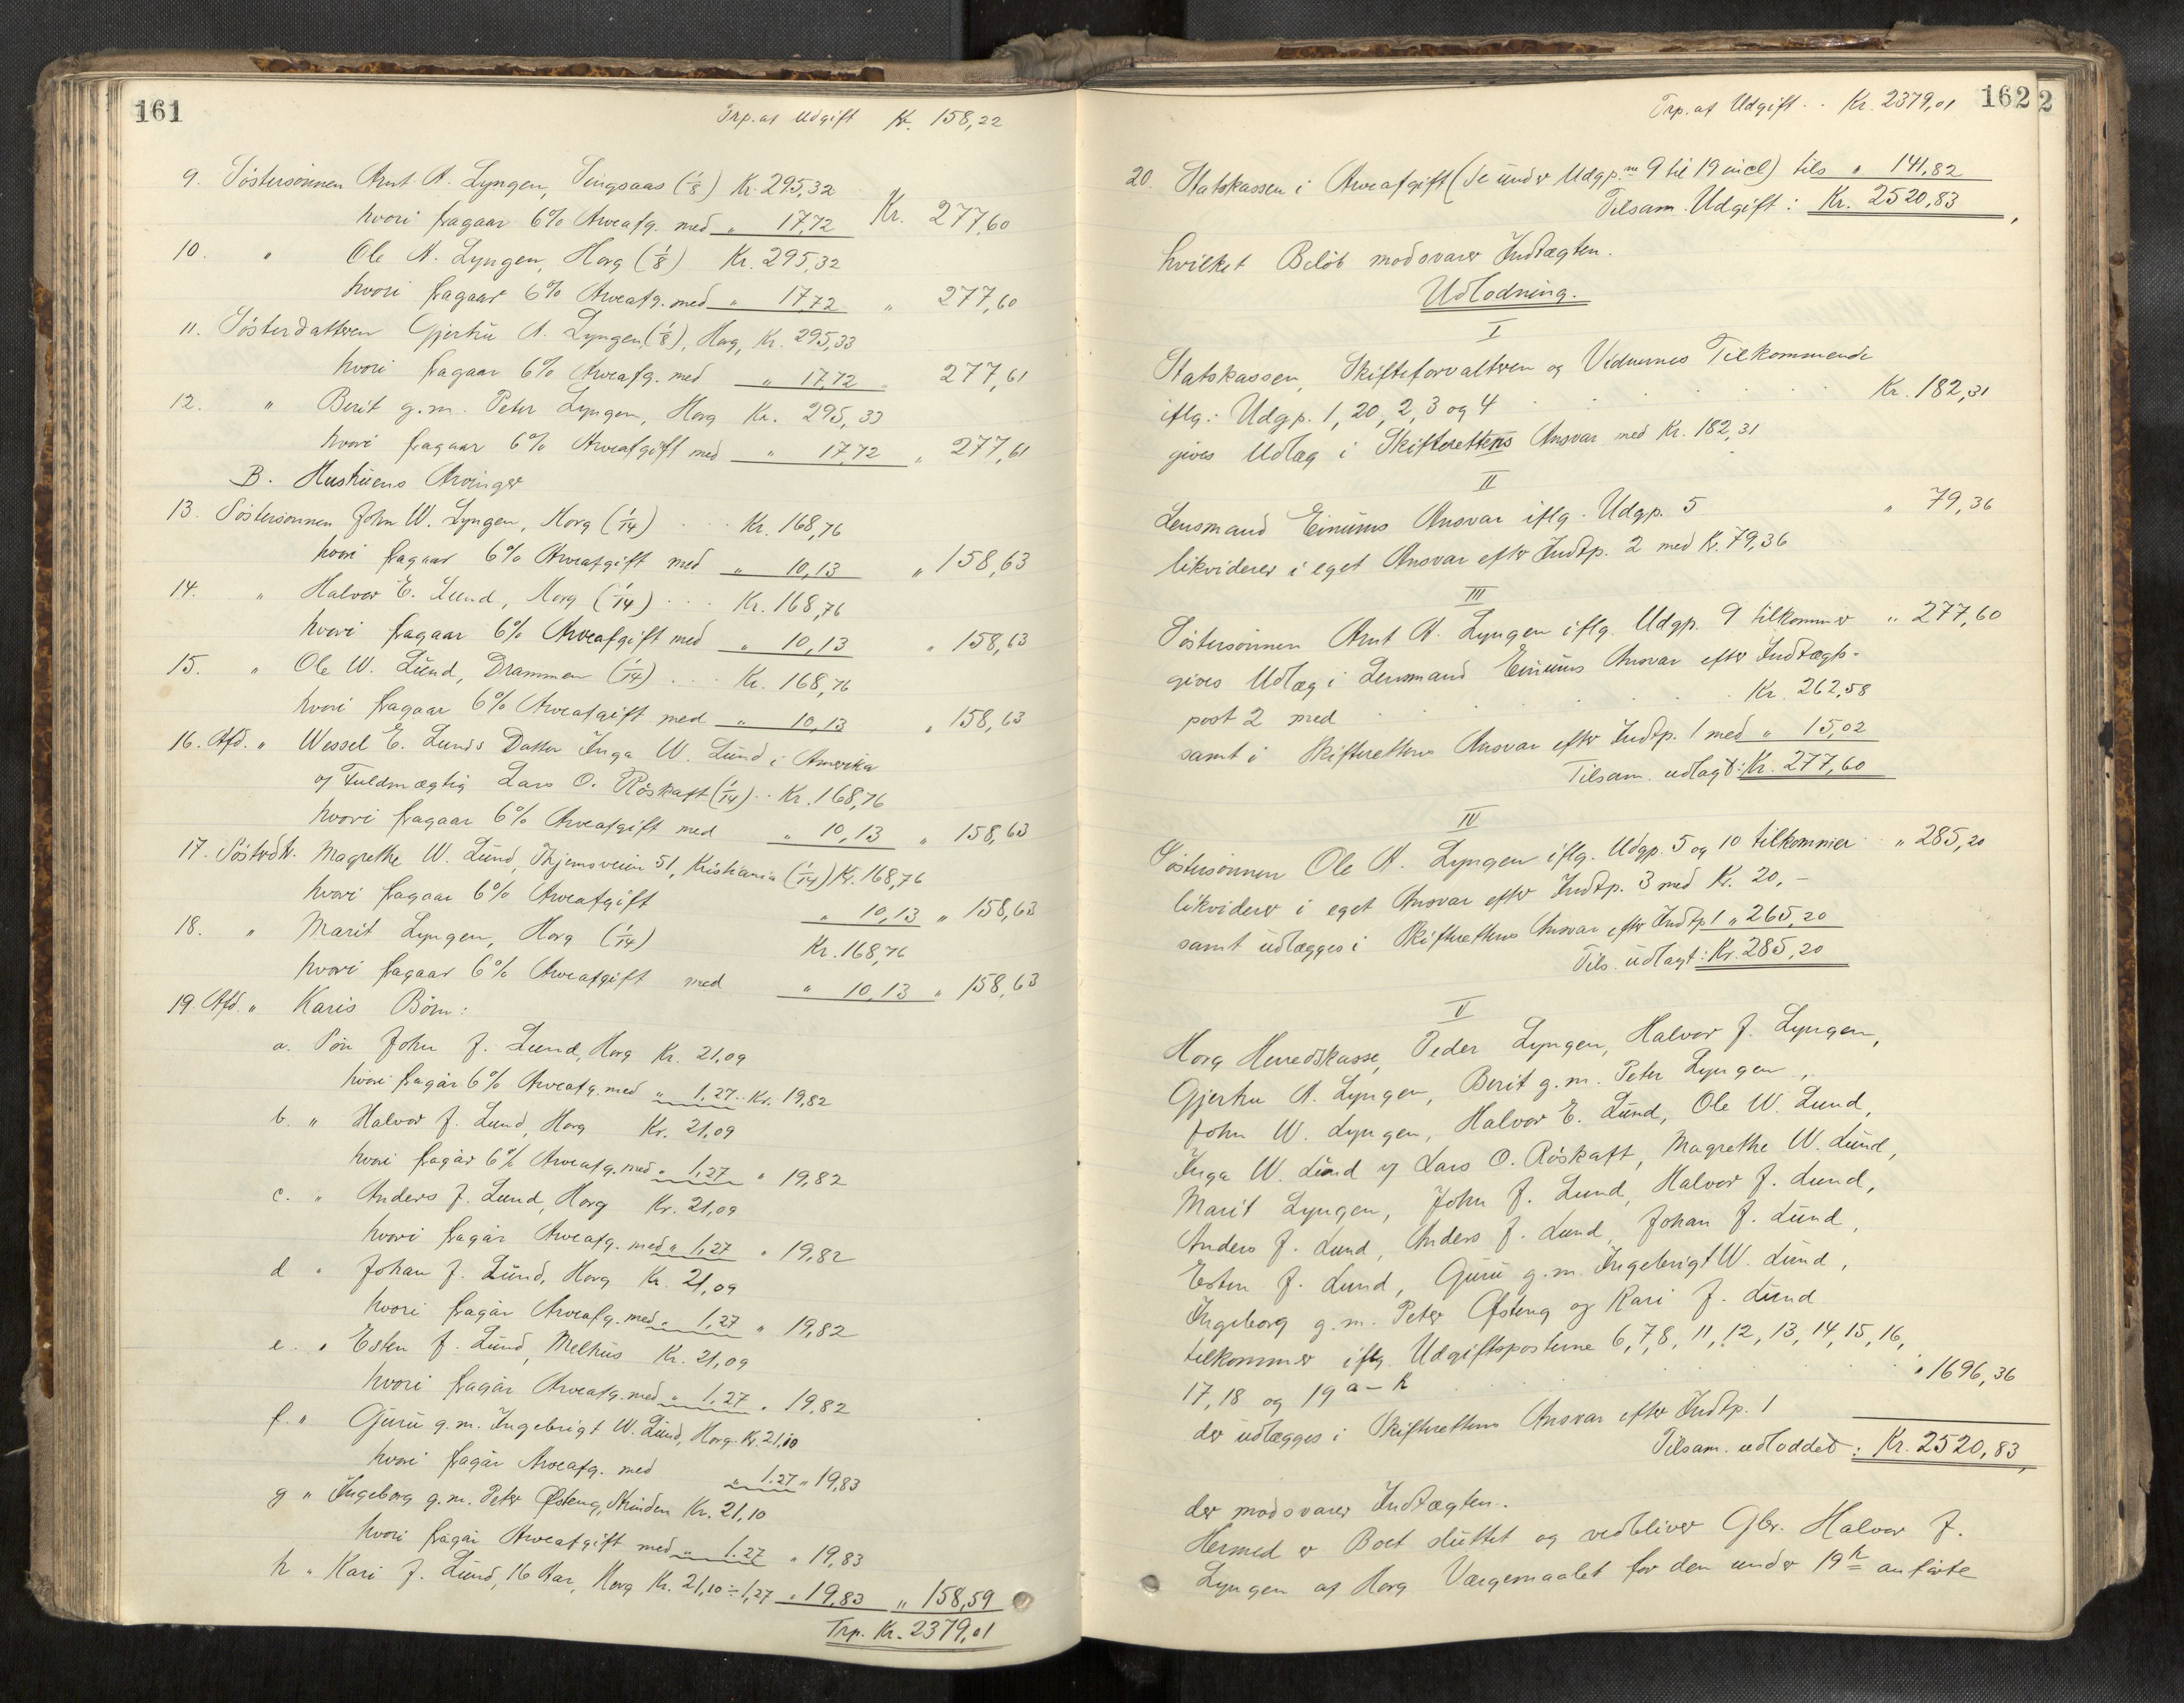 161
Trp. af Udgift Kr. 158,22
9. Söstersönnen Arnt A. Lyngen, Singsaas (1/8) Kr. 295,32
hvori fragaar 6% Arveafg. med " 17,72 Kr. 277,60
10. " Ole A. Lyngen, Horg (1/8) Kr. 295,32
hvori fragaar 6% Arveafg. med " 17,72 " 277,60
11. Sösterdatteren Gjertru A. Lyngen (1/8), Horg, Kr. 295,33
hvori fragaar 6% Arveafg. med " 17,72 " 277,61
12. " Berit g.m. Peter Lyngen, Horg Kr. 295,33
hvori fragaar 6% Arveafgift med " 17,72 " 277,61
B. Hustruens Arvinger
13. Söstersönnen John W. Lyngen, Horg (1/14) . . . Kr. 168,76
hvori fragaar 6% Arveafgift med " 10,13 " 158,63
14. " Halvor E. Lund, Horg (1/14) . . . Kr. 168,76
hvori fragaar 6% Arveafgift med " 10,13 " 158,63
15. " Ole W. Lund, Drammen (1/14) . . . Kr. 168,76
hvori fragaar 6% Arveafgift med " 10,13 " 158,63
16. Afd. " Wessel E. Lunds Datter Inga W. Lund i Amerika
og Fuldmægtig Lars O. Röskaft (1/14) . . Kr. 168,76
hvori fragaar 6% Arveafgift med " 10,13 " 158,63
17. Söstrdtr. Magrethe W. Lund, Thjemsveien 51, Kristiania (1/14) Kr. 168,76
hvori fragaar 6% Arveafgift " 10,13 " 158,63
18. " Marit Lyngen, Horg (1/14) Kr. 168,76
hvori fragaar 6% Arveafgift med " 10,13 " 158,63
19. Afd. " Karis Börn:
a. Sön John J. Lund, Horg Kr. 21,09
hvori fragår 6% Arveafg. med " 1,27 . . Kr. 19,82
b. " Halvor J. Lund, Horg Kr. 21,09
hvori fragår 6% Arveafg. med " 1,27 " 19,82
c. " Anders J. Lund, Horg Kr. 21,09
hvori fragår Arveafg. med " 1,27 " 19,82
d " Johan J. Lund, Horg Kr. 21,09
hvori fragår Arveafg. med " 1,27 " 19,82
e. " Esten J. Lund, Melhus Kr. 21,09
hvori fragår Arveafg. med " 1,27 " 19,82
f. " Guru g.m. Ingebrigt W. Lund, Horg. Kr. 21,10
hvori fragår Arveafg. med " 1.27 " 19,83
g " Ingeborg g.m. Peter Østeng, Kr. 21,10
hvori fragår Arveafgift med " 1.27 " 19,83
h " Kari J. Lund, 16 Aar, Horg Kr. 21,10 ÷ 1,27 " 19,83 " 158,59
Trp. Kr. 2379,01
162
2
Trp. af Udgift . . Kr. 2379,01
20. Statskassen i Arveafgift (se under Udgp. 9 til 19 incl) tils " 141,82
Tilsam. Udgift: Kr. 2520,83,
hvilket Belöb modsvarer Indtægten.
Udlodning.
I
Statskassen, Skifteforvalteren og Vidnernes Tilkommende
iflg: Udgp. 1, 20, 2, 3 og 4 . . . . . Kr. 182,31
gives Udlæg i Skifterettens Ansvar med Kr. 182,31
II
Lensmand Einums Ansvar iflg. Udgp. 5 " 79,36
likviderer i eget Ansvar efter Indtp. 2 med Kr. 79,36
III
Söstersönnen Arnt A. Lyngen iflg. Udgp. 9 tilkommer " 277,60
gives Udlæg i Lensmand Einums Ansvar efter Indtægts-
post 2 med . . . . . Kr. 262,58
samt i Skifterettens Ansvar efter Indtp. 1 med " 15,02
Tilsam. udlagt: Kr. 277,60
IV
Söstersönnen Ole A. Lyngen iflg. Udgp. 5 og 10 tilkommer " 285,20
likviderer i eget Ansvar efter Indtp. 3 med Kr. 20,-
samt udlægges i Skifterettens Ansvar efter Indtp 1 " 265,20
Tils. udlagt: Kr. 285,20
V
Horg Herredskasse, Peder Lyngen, Halvor J. Lyngen,
Gjertru A. Lyngen, Berit g.m. Peter Lyngen,
John W. Lyngen, Halvor E. Lund, Ole W. Lund,
Inga W. Lund v/ Lars O. Röskaft, Magrethe W. Lund,
Marit Lyngen, John J. Lund, Halvor J. Lund,
Anders J. Lund, Anders J. Lund, Johan J. Lund,
Esten J. Lund, Guru g.m. Ingebrigt W. Lund,
Ingeborg g.m. Peter Østeng og Kari J. Lund
tilkommer iflg. Udgiftsposterne 6, 7, 8, 11, 12, 13, 14, 15, 16,
17, 18 og 19 a - h . . . . . " 1696,36
der udlægges i Skifterettens Ansvar efter Indtp. 1
Tilsam. udloddet: Kr. 2520,83,
der modsvarer Indtægten.
Hermed er Boet sluttet og vedbliver Gbr. Halvor J.
Lyngen af Horg Værgemaalet for den under 19 h anförte